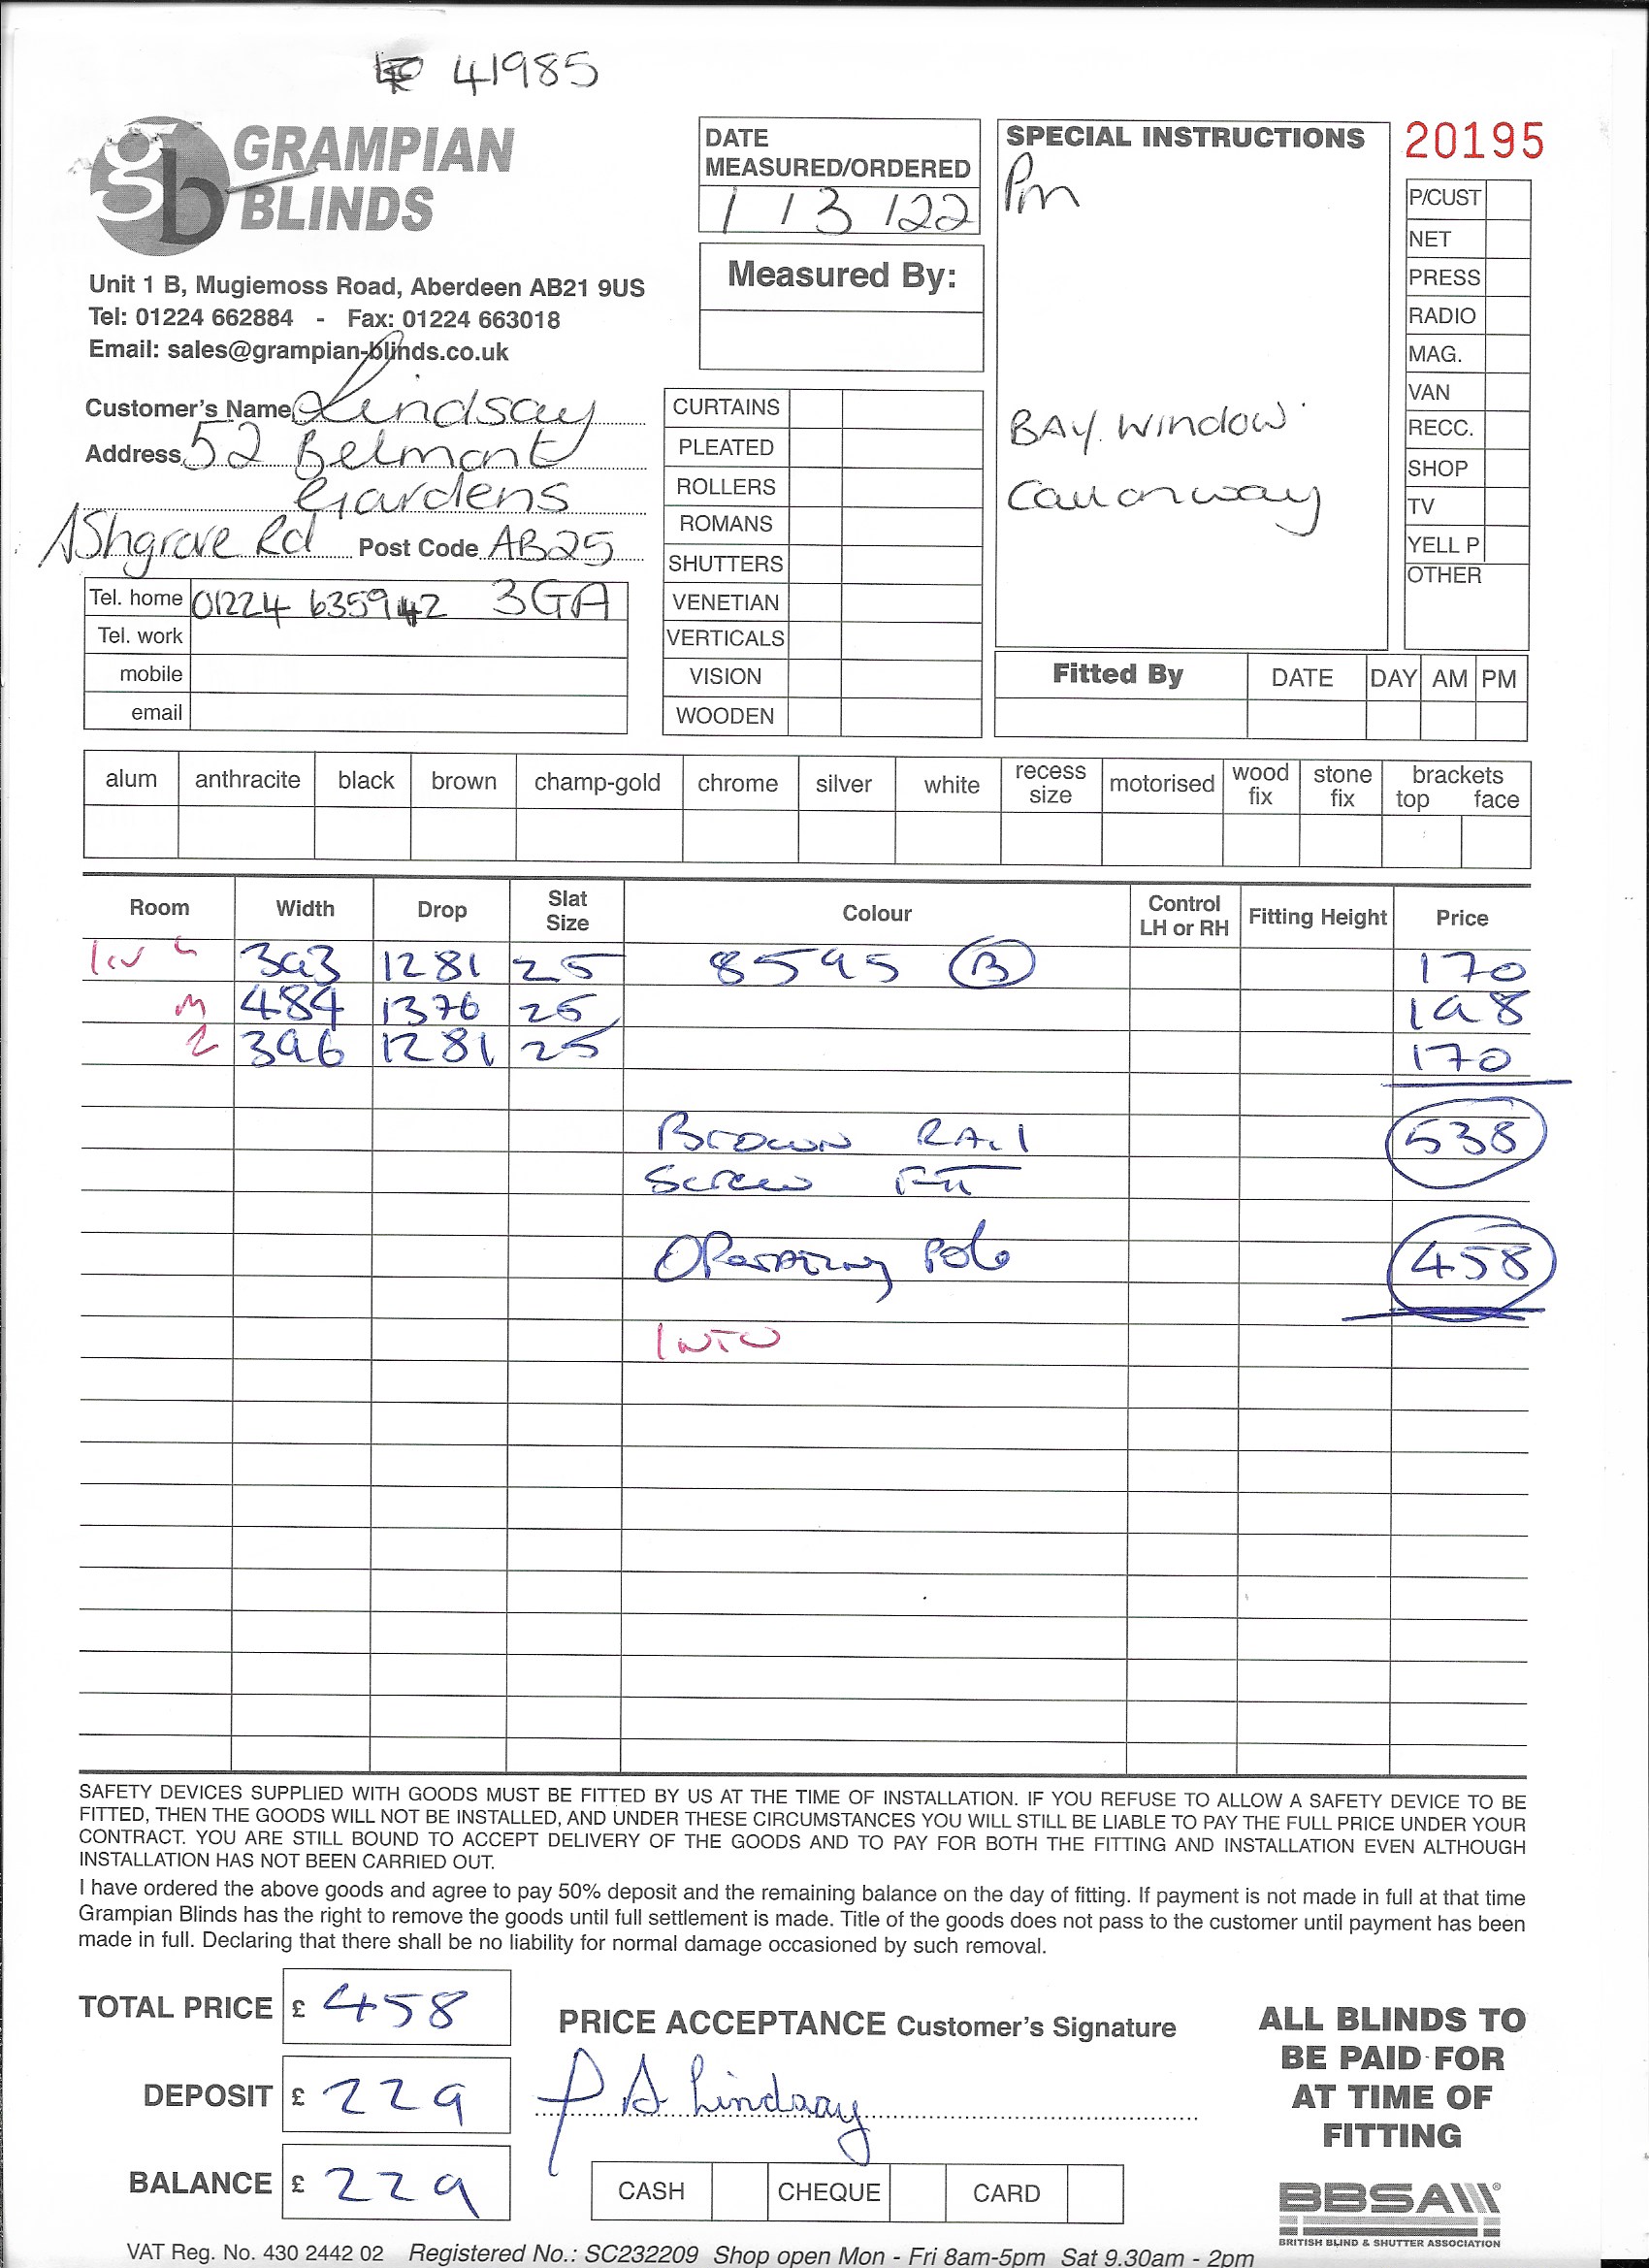 41985
GRAMPIAN
BLINDS
Unit 1 B, Mugiemoss Road, Aberdeen AB21 9US
Tel: 01224 662884 - Fax: 01224 663018
Email: sales@grampian-blinds.co.uk
DATE
MEASURED/ORDERED
1 / 3 / 22
Measured By:
SPECIAL INSTRUCTIONS
Pm
BAY WINDOW
Call on way
20195
P/CUST
NET
PRESS
RADIO
MAG.
VAN
RECC.
SHOP
TV
YELL P
OTHER
Customer's Name Lindsay
Address 52 Belmont
Gardens
Ashgrove Rd Post Code AB25
Tel. home 01224 635942 3GA
Tel. work
mobile
email
CURTAINS
PLEATED
ROLLERS
ROMANS
SHUTTERS
VENETIAN
VERTICALS
VISION
WOODEN
Fitted By DATE DAY AM PM
alum anthracite black brown champ-gold chrome silver white recess size motorised wood fix stone fix brackets top face
Room Width Drop Slat Size Colour Control LH or RH Fitting Height Price
Liv L 393 1281 25 8595 B 170
M 484 1376 25 198
R 396 1281 25 170
Brown RAil 538
Screw Fit
OPerating Pole 458
INTU
SAFETY DEVICES SUPPLIED WITH GOODS MUST BE FITTED BY US AT THE TIME OF INSTALLATION. IF YOU REFUSE TO ALLOW A SAFETY DEVICE TO BE
FITTED, THEN THE GOODS WILL NOT BE INSTALLED, AND UNDER THESE CIRCUMSTANCES YOU WILL STILL BE LIABLE TO PAY THE FULL PRICE UNDER YOUR
CONTRACT. YOU ARE STILL BOUND TO ACCEPT DELIVERY OF THE GOODS AND TO PAY FOR BOTH THE FITTING AND INSTALLATION EVEN ALTHOUGH
INSTALLATION HAS NOT BEEN CARRIED OUT.
I have ordered the above goods and agree to pay 50% deposit and the remaining balance on the day of fitting. If payment is not made in full at that time
Grampian Blinds has the right to remove the goods until full settlement is made. Title of the goods does not pass to the customer until payment has been
made in full. Declaring that there shall be no liability for normal damage occasioned by such removal.
TOTAL PRICE £ 458
DEPOSIT £ 229
BALANCE £ 229
PRICE ACCEPTANCE Customer's Signature
P A Lindsay
CASH CHEQUE CARD
ALL BLINDS TO
BE PAID FOR
AT TIME OF
FITTING
BBSA
BRITISH BLIND & SHUTTER ASSOCIATION
VAT Reg. No. 430 2442 02 Registered No.: SC232209 Shop open Mon - Fri 8am-5pm Sat 9.30am - 2pm